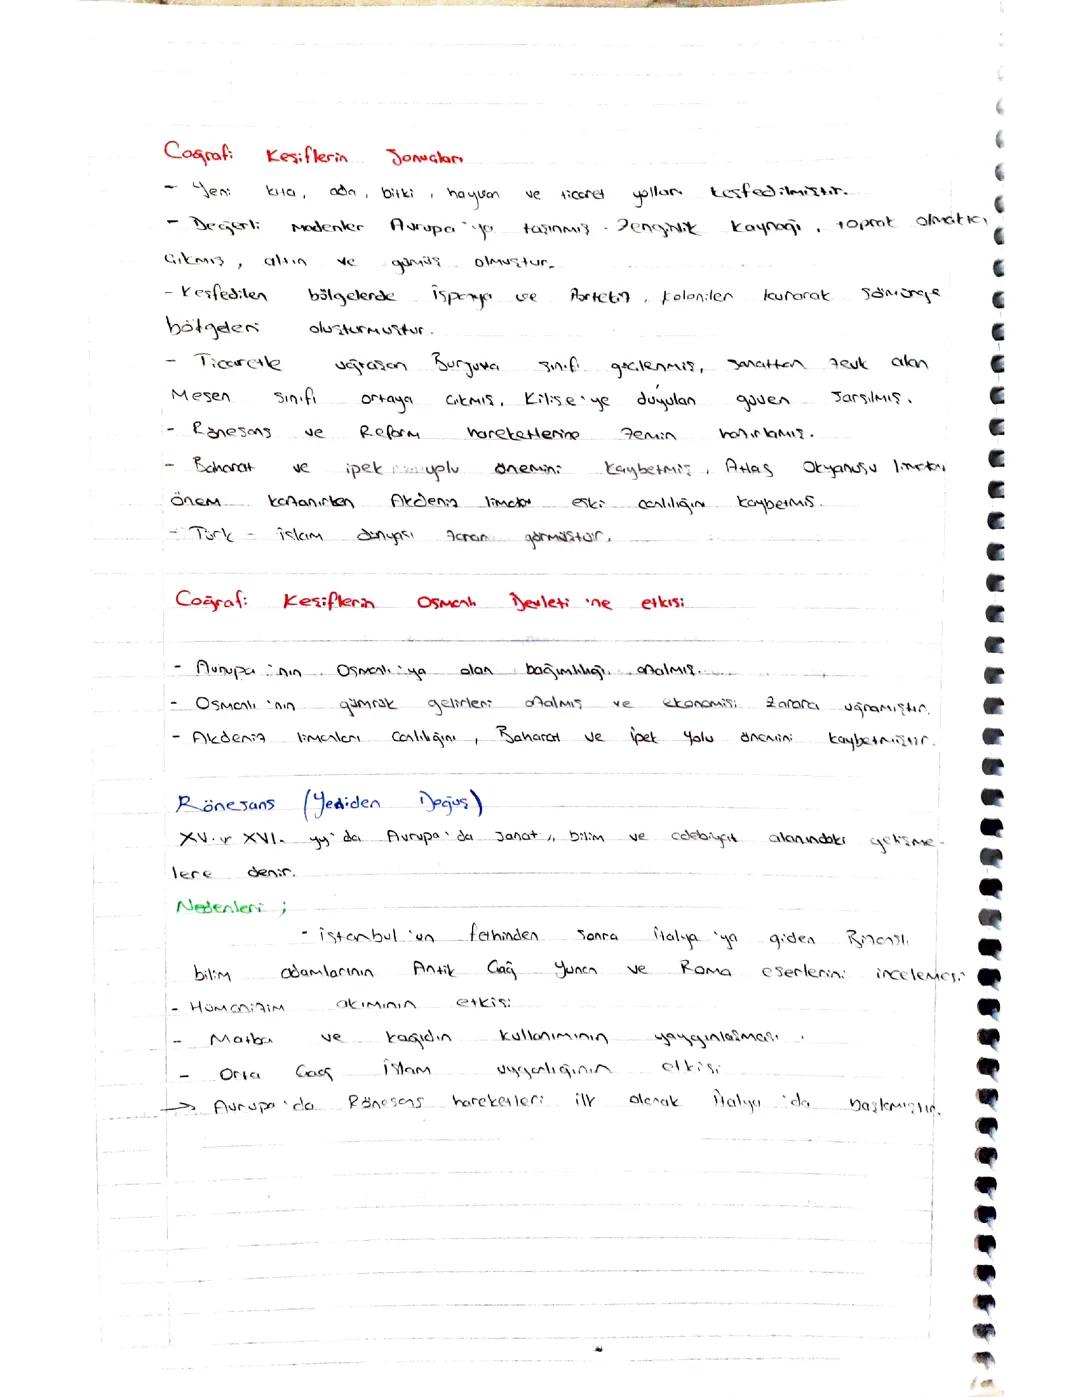 Coğrafi Keşiflerin Sonuçları
- Yeni kıta, ada, bitki, hayvan ve ticaret yolları keşfedilmiştir.
- Değerli Madenler Avrupa'ya taşınmış. Zenginlik kaynağı, toprak olmaktan
Çıkmış, altın ve gümüş olmuştur.
- Keşfedilen bölgelerde İspanya ve Portekiz, koloniler kurarak sömürge
bölgeleri oluşturmuştur.
- Ticaretle uğraşan Burjuva sınıfı güçlenmiş, Sanattan zevk alan
Mesen sınıfı ortaya çıkmış, Kilise'ye duyulan güven Sarsılmış.
- Rönesans ve Reform hareketlerine zemin hazırlamış.
- Baharat ve ipek yolu önemini kaybetmiş, Atlas Okyanusu limanları
önem kazanırken Akdeniz limanları eski canlılığını kaybetmiş.
- Türk - islam dünyası zarar görmüştür.
Coğrafi Keşiflerin Osmanlı Devleti'ne etkisi
- Avrupa'nın Osmanlı'ya olan bağımlılığı azalmış.
- Osmanlı'nın gümrük gelirleri azalmış ve ekonomisi zarara uğramıştır.
- Akdeniz limanları Canlılığını, Baharat ve ipek Yolu önemini kaybetmiştir.
Rönesans (Yeniden Doğuş)
XV. ve XVI. yy'da Avrupa'da sanat, bilim ve edebiyat alanındaki gelişme-
lere denir.
Nedenleri ;
- istanbul'un fethinden sonra italya'ya giden Bizanslı
bilim adamlarının Antik Çağ Yunan ve Roma eserlerini incelemesi
- Hümanizim akımının etkisi
- Matbaa ve kağıdın kullanımının yaygınlaşması.
- Orta Çağ islam uygarlığının etkisi
→ Avrupa'da Rönesans hareketleri ilk olarak italya'da başlamıştır.